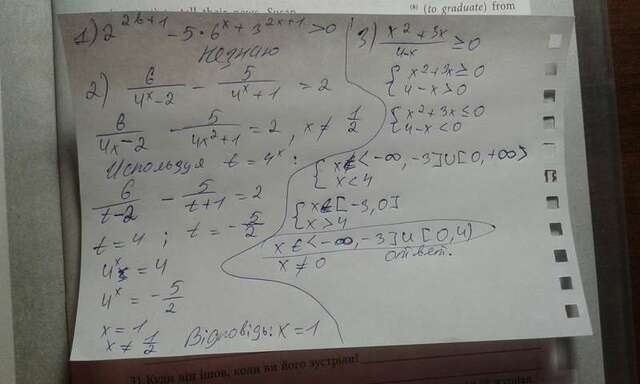 (to graduate) from
1) 2^{2x+1} - 5·6^x + 3^{2x+1} > 0
Незнаю
2) 6/(4^x-2) - 5/(4^x+1) = 2
6/(4x-2) - 5/(4x^2+1) = 2, x ≠ 1/2
Используя t = 4^x:
6/(t-2) - 5/(t+1) = 2
t = 4 ; t = -5/2
4^x = 4
4^x = -5/2
x = 1
x ≠ 1/2
Відповідь: x = 1
3) (x^2+3x)/(4-x) ≥ 0
{ x^2+3x ≥ 0
4-x > 0
{ x^2+3x ≤ 0
4-x < 0
{ x∈<-∞, -3]∪[0, +∞>
x < 4
{ x∈[-3, 0]
x > 4
x∈<-∞, -3]∪[0, 4)
x ≠ 0 ответ.
3) Куди він ішов, коли ви його зустріли!